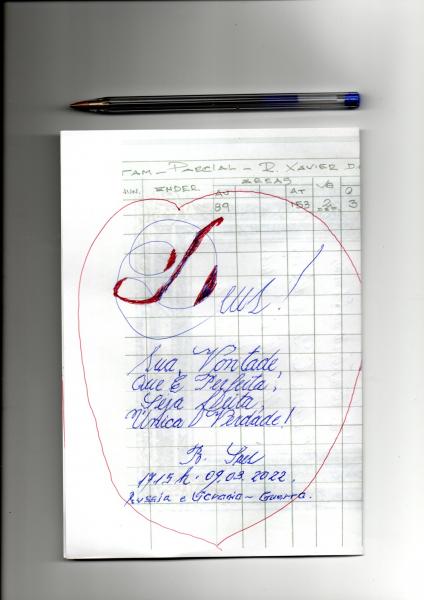 TAM - PARCIAL - R. XAVIER D.
ENDER. AREAS
AU AT VG Q
89 153 2 3
Deus!
Sua, Vontade,
Que É Perfeita,
Seja feita,
Única Verdade!
17:15h. 09.03.2022.
Russia e Ucrania - Guerra.